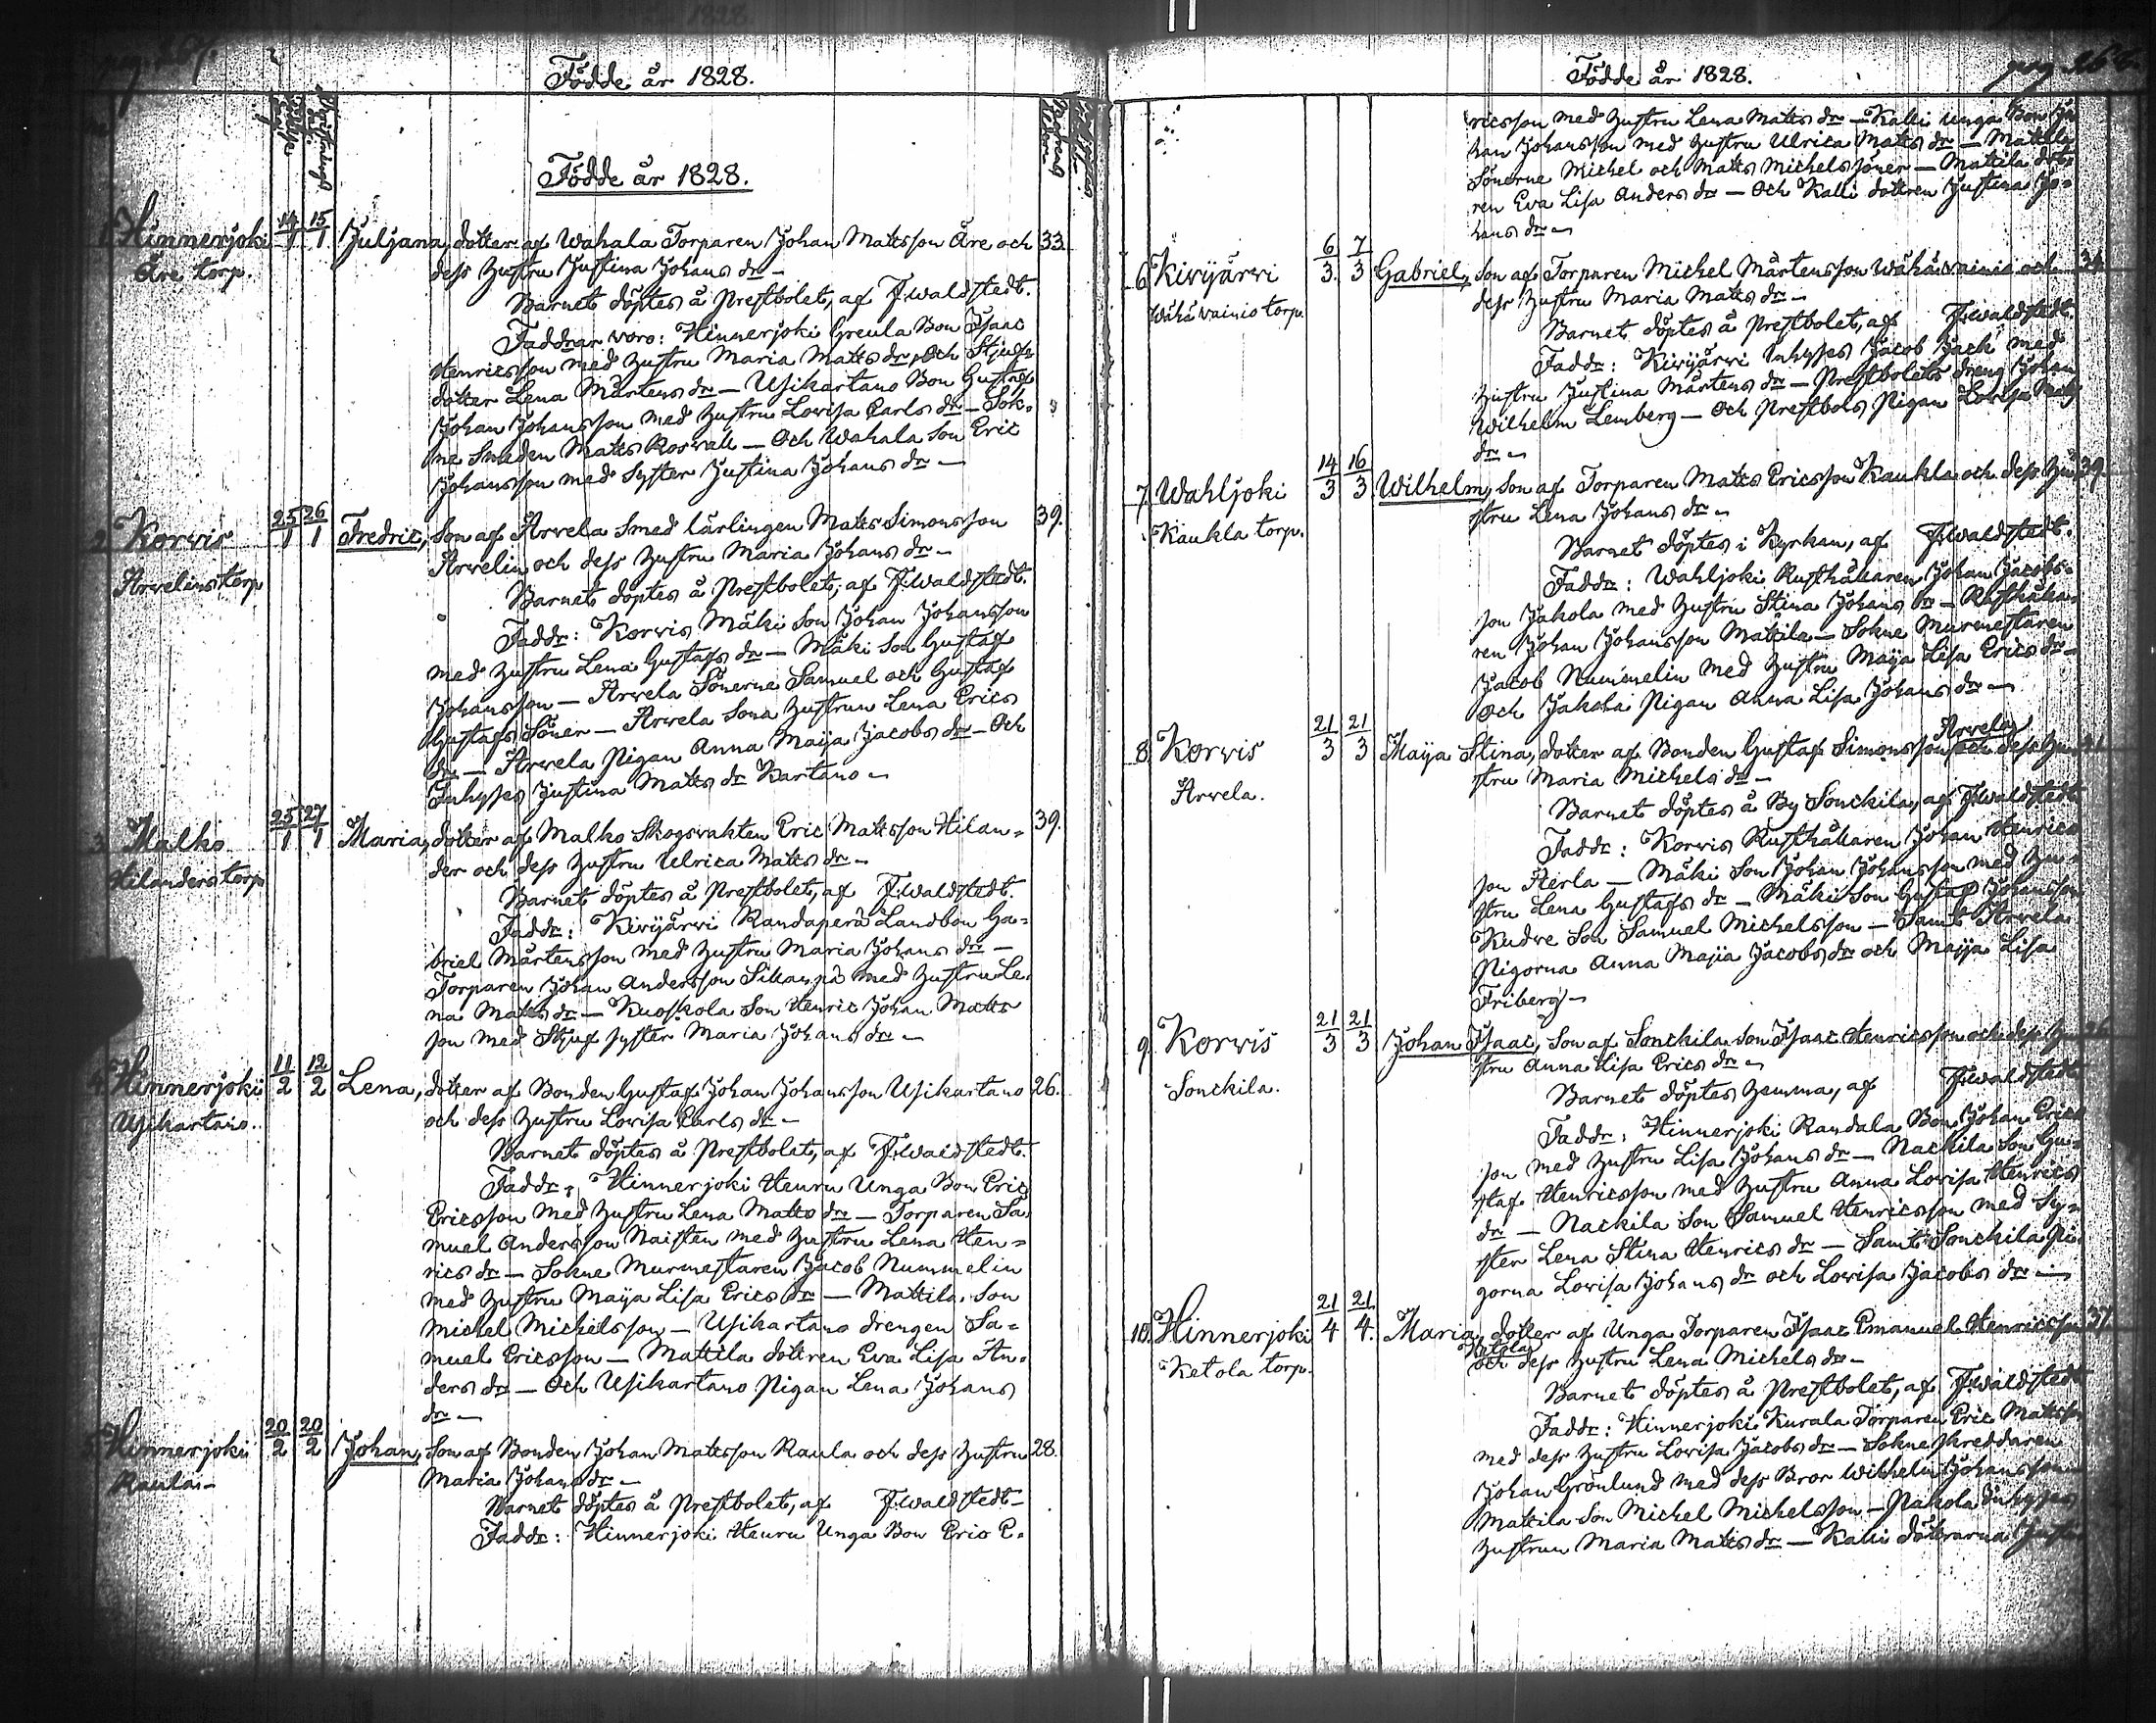 Födde år 1828.
Födde år 1828.
1. Hinnerjoki 14/1 15/1 Juljana, dotter af Wahala Torparen Johan Mattsson Äre och 33.
Äre torp. dess Hustru Justina Johans dr –
Barnet döptes å Prestbolet, af F. Waldstedt.
Faddrar voro: Hinnerjoki Greula Bon Isaac
Henricsson med Hustru Maria Matts dr, Och Stjuf
dotter Lena Mårtens dr – Usikartano Bon Gustaf
Johan Johansson med Hustru Lovisa Carls dr – Sok-
ne Smeden Matts Roswall – Och Wahala Son Eric
Johansson med Syster Justina Johans dr –
2. Korvis 25/1 26/1 Fredric, Son af Arvela Smed lärlingen Matts Simonsson 39.
Arvelins torp Arvelin och dess Hustru Maria Johans dr –
Barnet döptes å Prestbolet, af F. Waldstedt.
Faddr: Korvis Mäki Son Johan Johansson
med Hustru Lena Gustafs dr – Mäki Son Gustaf
Johansson – Arvela Sönerne Samuel och Gustaf
Gustafs Söner – Arvela Sona Hustrun Lena Erics
dr – Arvela Pigan Anna Maija Jacobs dr – Och
Inhyses Justina Matts dr Kartano –
3. Malko 25/1 27/1 Maria, dotter af Malko Skogsvakten Eric Mattsson Hilan= 39.
Hilanders torp der och dess Hustru Ulrica Matts dr –
Barnet döptes å Prestbolet, af F. Waldstedt.
Faddr: Kivijärvi Randaperä Landbon Ga=
briel Mårtensson med Hustru Maria Johans dr –
Torparen Johan Andersson Sikanpä med Hustru Le-
na Matts dr – Kuoskola Son Henric Johan Matts
son med Stjuf syster Maria Johans dr –
4. Hinnerjoki 11/2 12/2 Lena, dotter af Bonden Gustaf Johan Johansson Usikartano 26.
Usikartano. och dess Hustru Lovisa Carls dr –
Barnet döptes å Prestbolet, af F. Waldstedt.
Faddr: Hinnerjoki Heuru Unga Bon Eric
Ericsson med Hustru Lena Matts dr – Torparen Sa-
muel Andersson Naisten med Hustru Lena Hen=
rics dr – Sokne Murmestaren Jacob Nummelin
med Hustru Maija Lisa Erics dr – Mattila Son
Michel Michelsson – Usikartano drengen Sa=
muel Ericsson – Mattila dottren Eva Lisa An-
ders dr – Och Usikartano Pigan Lena Johans
dr –
5. Hinnerjoki 20/2 20/2 Johan, Son af Bonden Johan Mattsson Raula och dess Hustru 28.
Raula – Maria Johans dr –
Barnet döptes å Prestbolet, af F. Waldstedt –
Faddr: Hinnerjoki Heuru Unga Bon Eric E-
Födde år 1828.
pag. 268.
ricsson med Hustru Lena Matts dr – Kalli Unga Bon Jo
han Johansson med Hustru Ulrica Matts dr – Mattila
Sönerne Michel och Matts Michels söner – Mattila dott
ren Eva Lisa Anders dr – Och Kalli dottren Justina Jo=
hans dr –
6. Kivijärvi 6/3 7/3 Gabriel, Son af Torparen Michel Mårtensson Wähävainio och 34
Wähävainio torp. dess Hustru Maria Matts dr –
Barnet döptes å Prestbolet, af F. Waldstedt.
Faddr: Kivijärvi Inhyses Jacob Jack med
Hustru Justina Mårtens dr – Prestbolets dreng Johan
Wilhelm Lemberg – Och Prestbols Pigan Lovisa Matts
dr –
7. Wahljoki 14/3 16/3 Wilhelm, Son af Torparen Matts Ericsson Kaukla och dess Hu 39.
Kaukla torp. stru Lena Johans dr –
Barnet döptes i Kyrkan, af F. Waldstedt.
Faddr: Wahljoki Rusthållaren Johan Jacobs-
son Jakola med Hustru Stina Johans dr – Rusthålla-
ren Johan Johansson Mattila – Sokne Murmestaren
Jacob Nummelin med Hustru Maija Lisa Erics dr –
Och Jakola Pigan Anna Lisa Johans dr –
8. Korvis 21/3 21/3 Maija Stina, dotter af Bonden Gustaf Simonsson Arvela och dess Hu 41
Arvela. stru Maria Michels dr –
Barnet döptes å By Sonckila, af F. Waldstedt
Faddr: Korvis Rusthållaren Johan Henrics
son Äerla – Mäki Son Johan Johansson med Hu-
stru Lena Gustafs dr – Mäki Son Gustaf Johansson
Kudre Son Samuel Michelsson – Samt Arvela
Pigorna Anna Majja Jacobs dr och Maija Lisa
Friberg –
9. Korvis 21/3 21/3 Johan Isaac, Son af Sonckila Son Isaac Henricsson och dess Hu 26
Sonckila. stru Anna Lisa Erics dr –
Barnet döptes Hemma, af F. Waldstedt
Faddr: Hinnerjoki Randala Bon Johan Erics
son med Hustru Lisa Johans dr – Nackila Son Gu=
staf Henricsson med Hustru Anna Lovisa Henrics
dr – Nackila Son Samuel Henricsson med Sy=
ster Lena Stina Henrics dr – Samt Sonckila Pi
gorna Lovisa Johans dr och Lovisa Jacobs dr –
10. Hinnerjoki 21/4 21/4 Maria, dotter af Unga Torparen Isaac Emanuel Henricsson 37
Ketola torp. Ketola och dess Hustru Lena Michels dr –
Barnet döptes å Prestbolet, af F. Waldstedt
Faddr: Hinnerjoki Kurala Torparen Eric Mattsson
med dess Hustru Lovisa Jacobs dr – Sokne skreddaren
Johan Grönlund med dess Bror Wilhelm Johansson –
Mattila Son Michel Michelsson – Pakola Inhyses
Hustrun Maria Matts dr – Kalli döttrarna